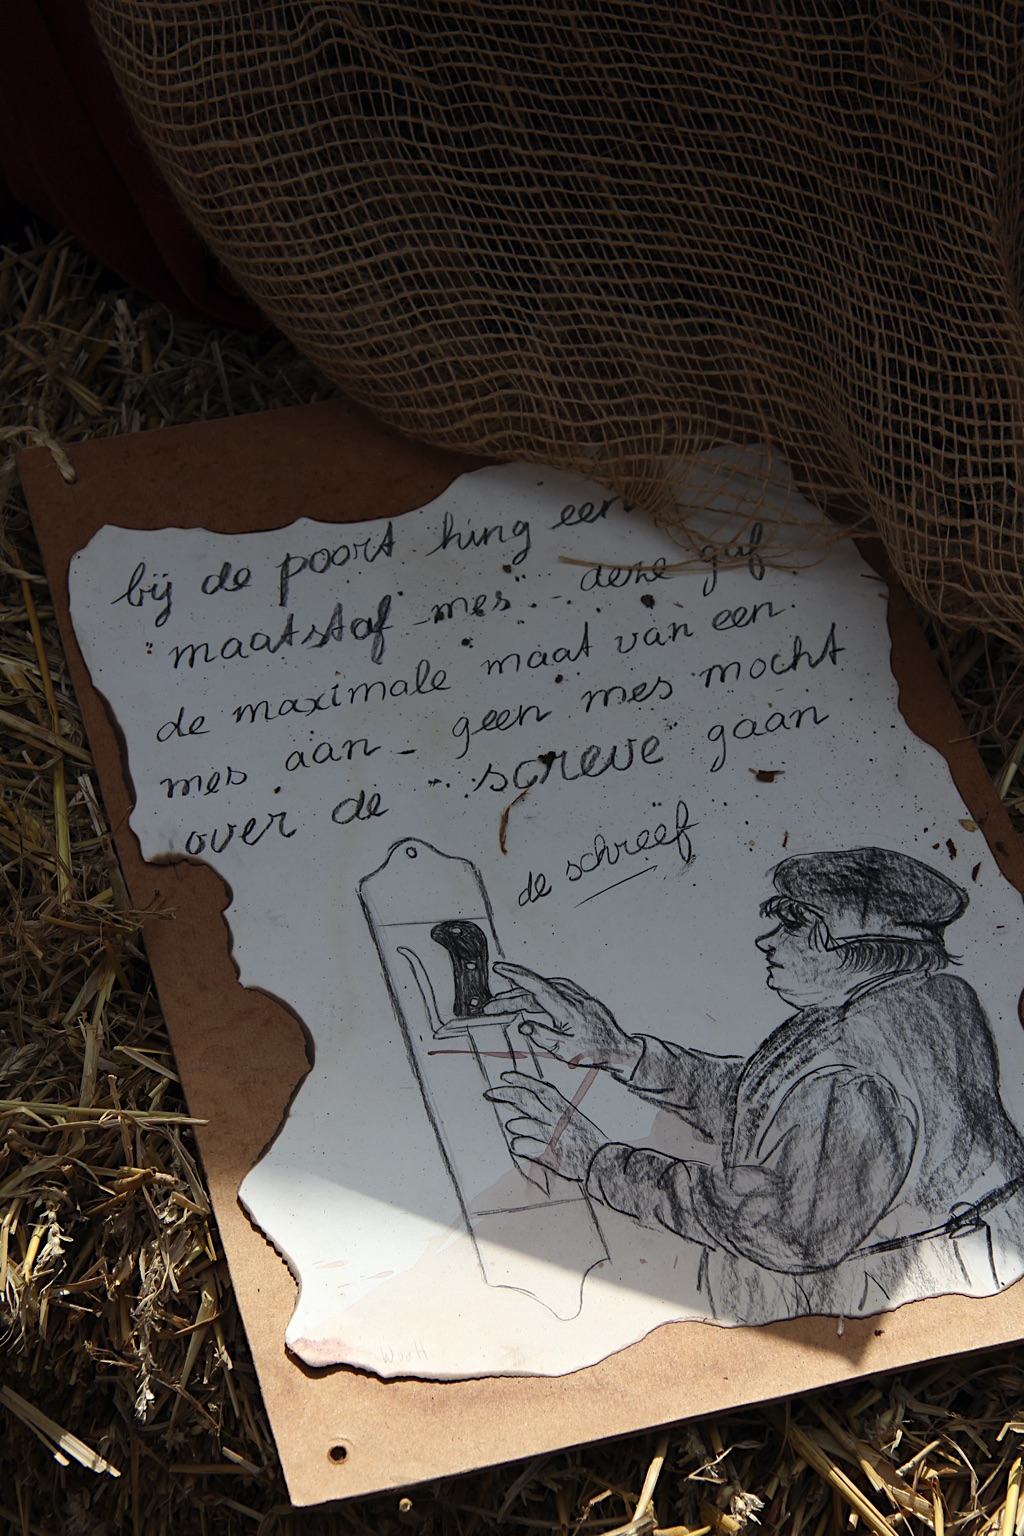 bij de poort hing een
"maatstaf mes" - deze gaf
de maximale maat van een
mes aan - geen mes mocht
over de "screve" gaan
de schreëf